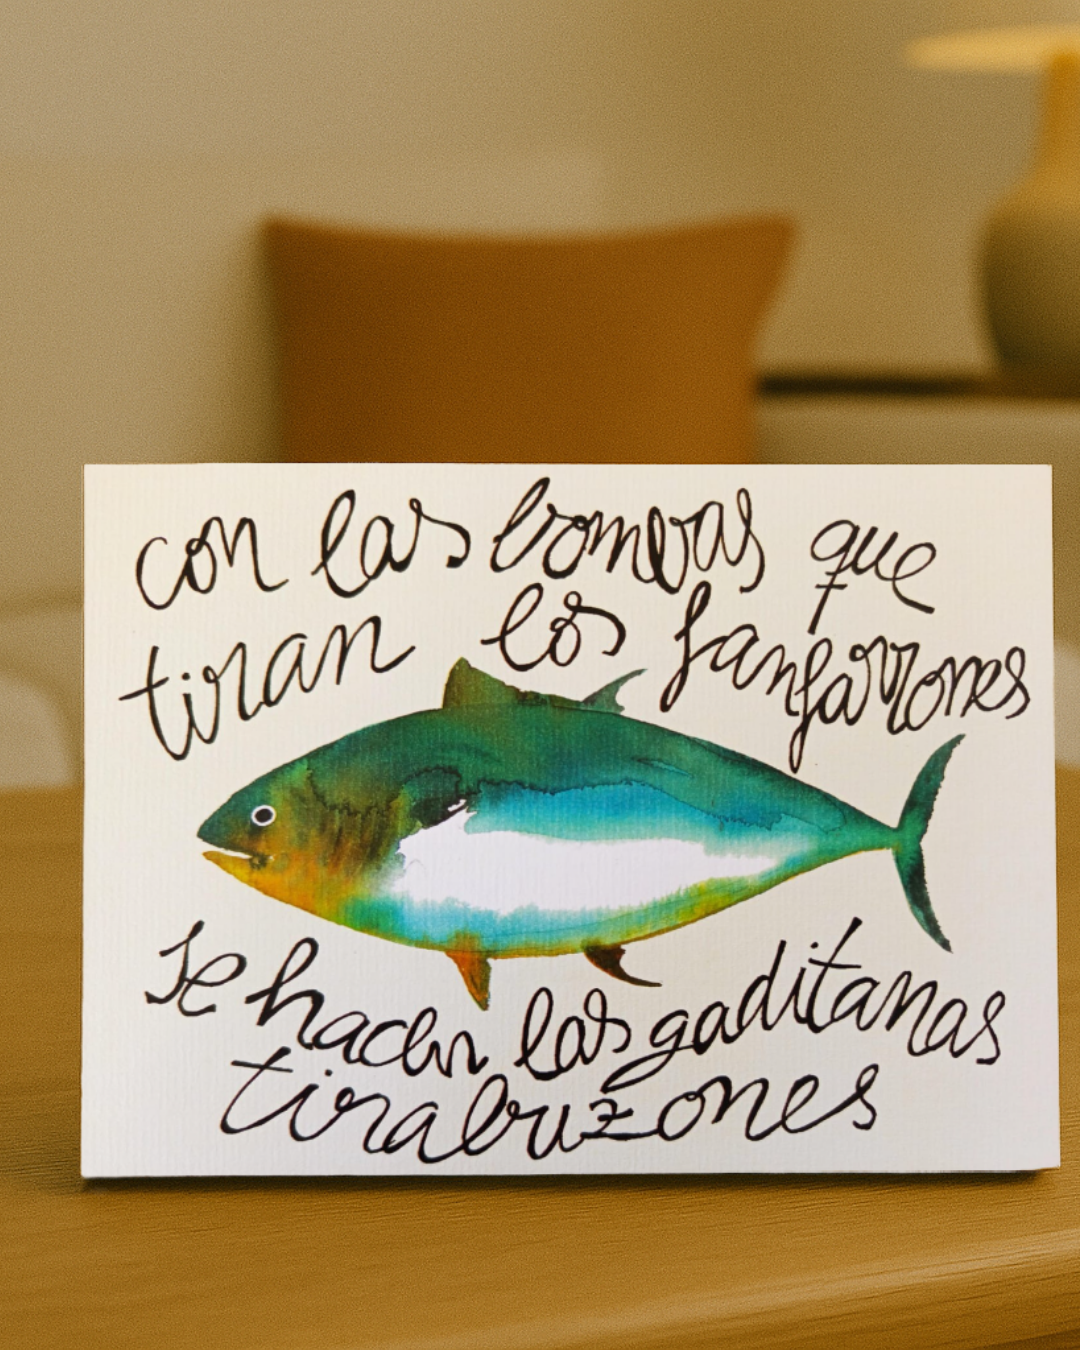 con las bombas que
tiran los fanfarrones
se hacen las gaditanas
tirabuzones